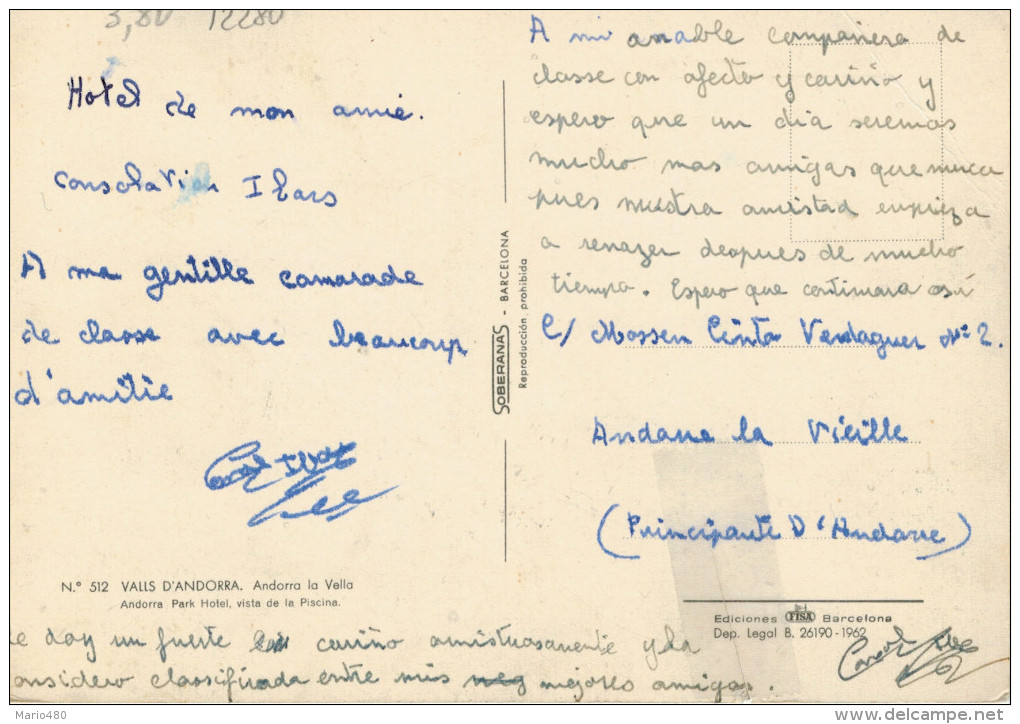 3,80 12280
Hotel de mon amie.
Consolation Ibars
A ma gentille camarade
de classe avec beaucoup
d'amitié
A mi amable compañera de
classe con afecto y cariño y
espero que un dia seremos
mucho mas amigas que nunca
pues nuestra amistad empieza
a renazer despues de mucho
tiempo. Espero que continuara así
C/ Mossen Cinto Verdaguer Nº 2.
Andorre la Vieille
(Principauté D'Andorre)
SOBERANAS - BARCELONA
Reproducción prohibida
N.º 512 VALLS D'ANDORRA. Andorra la Vella
Andorra Park Hotel, vista de la Piscina.
Ediciones FISA Barcelona
Dep. Legal B. 26190-1962
e doy un fuerte cariño amistuosamente y la
onsidero classifirada entre mis mejores amigas.
Mario480
delcampe.net